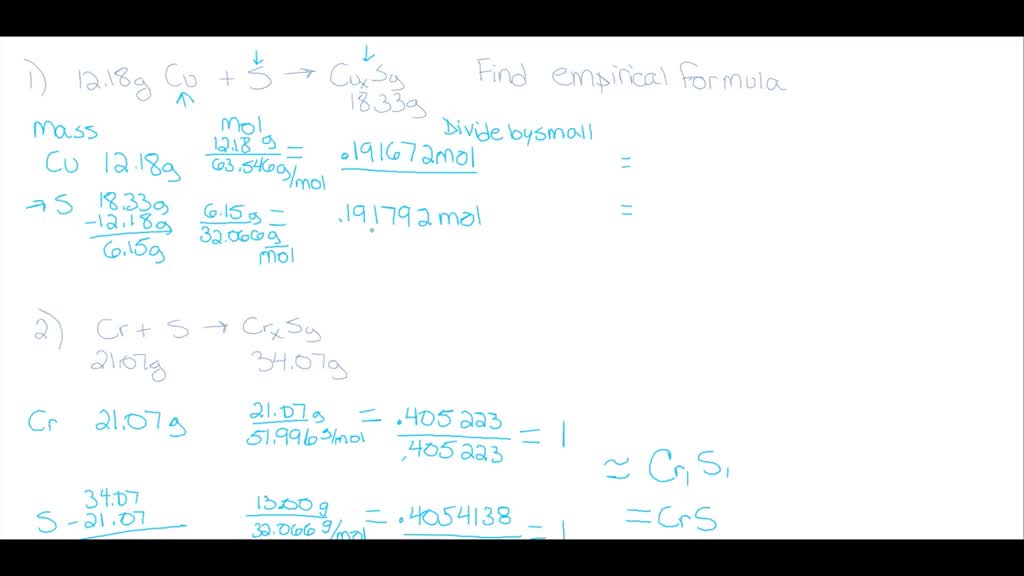 1) 12.18g Cu + S → CuxSy Find empirical formula
18.33g
Mass Mol Divide by small
Cu 12.18g 12.18 g / 63.546g/mol = .191672mol =
→ S 18.33g - 12.18g 6.15g 6.15g / 32.066g/mol = .191792mol =
2) Cr + S → CrxSy
21.07g 34.07g
Cr 21.07g 21.07g / 51.996g/mol = .405223 / .405223 = 1
≈ Cr1S1
S 34.07 - 21.07 13.00g / 32.066g/mol = .4054138 = 1
= CrS